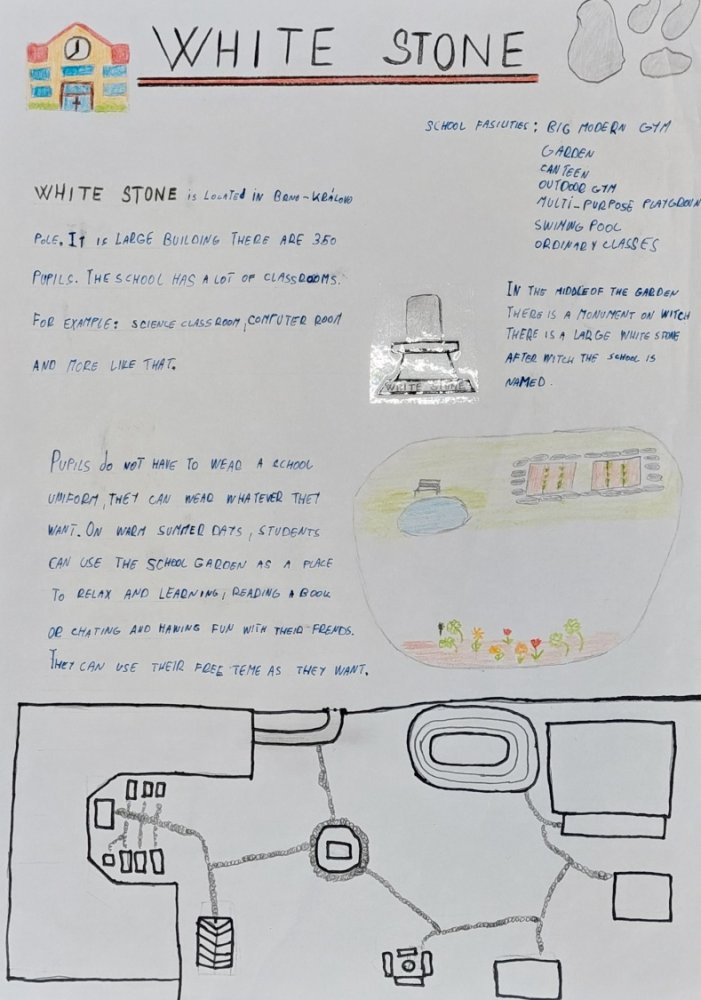 WHITE STONE
SCHOOL FASILITIES: BIG MODERN GYM
GARDEN
CANTEEN
OUTDOOR GYM
MULTI-PURPOSE PLAYGROUN
SWIMING POOL
ORDINARY CLASSES
WHITE STONE IS LOCATED IN BRNO-KRÁLOVO
POLE. IT IS LARGE BUILDING THERE ARE 350
PUPILS. THE SCHOOL HAS A LOT OF CLASSROOMS.
FOR EXAMPLE: SCIENCE CLASSROOM, COMPUTER ROOM
AND MORE LIKE THAT.
IN THE MIDDLE OF THE GARDEN
THERE IS A MONUMENT ON WITCH
THERE IS A LARGE WHITE STONE
AFTER WITCH THE SCHOOL IS
NAMED.
WHITE STONE
PUPILS DO NOT HAVE TO WEAR A SCHOOL
UNIFORM, THEY CAN WEAR WHATEVER THEY
WANT. ON WARM SUMMER DAYS, STUDENTS
CAN USE THE SCHOOL GARDEN AS A PLACE
TO RELAX AND LEARNING, READING A BOOK
OR CHATING AND HAWING FUN WITH THEIR FRENDS.
THEY CAN USE THEIR FREE TEME AS THEY WANT.